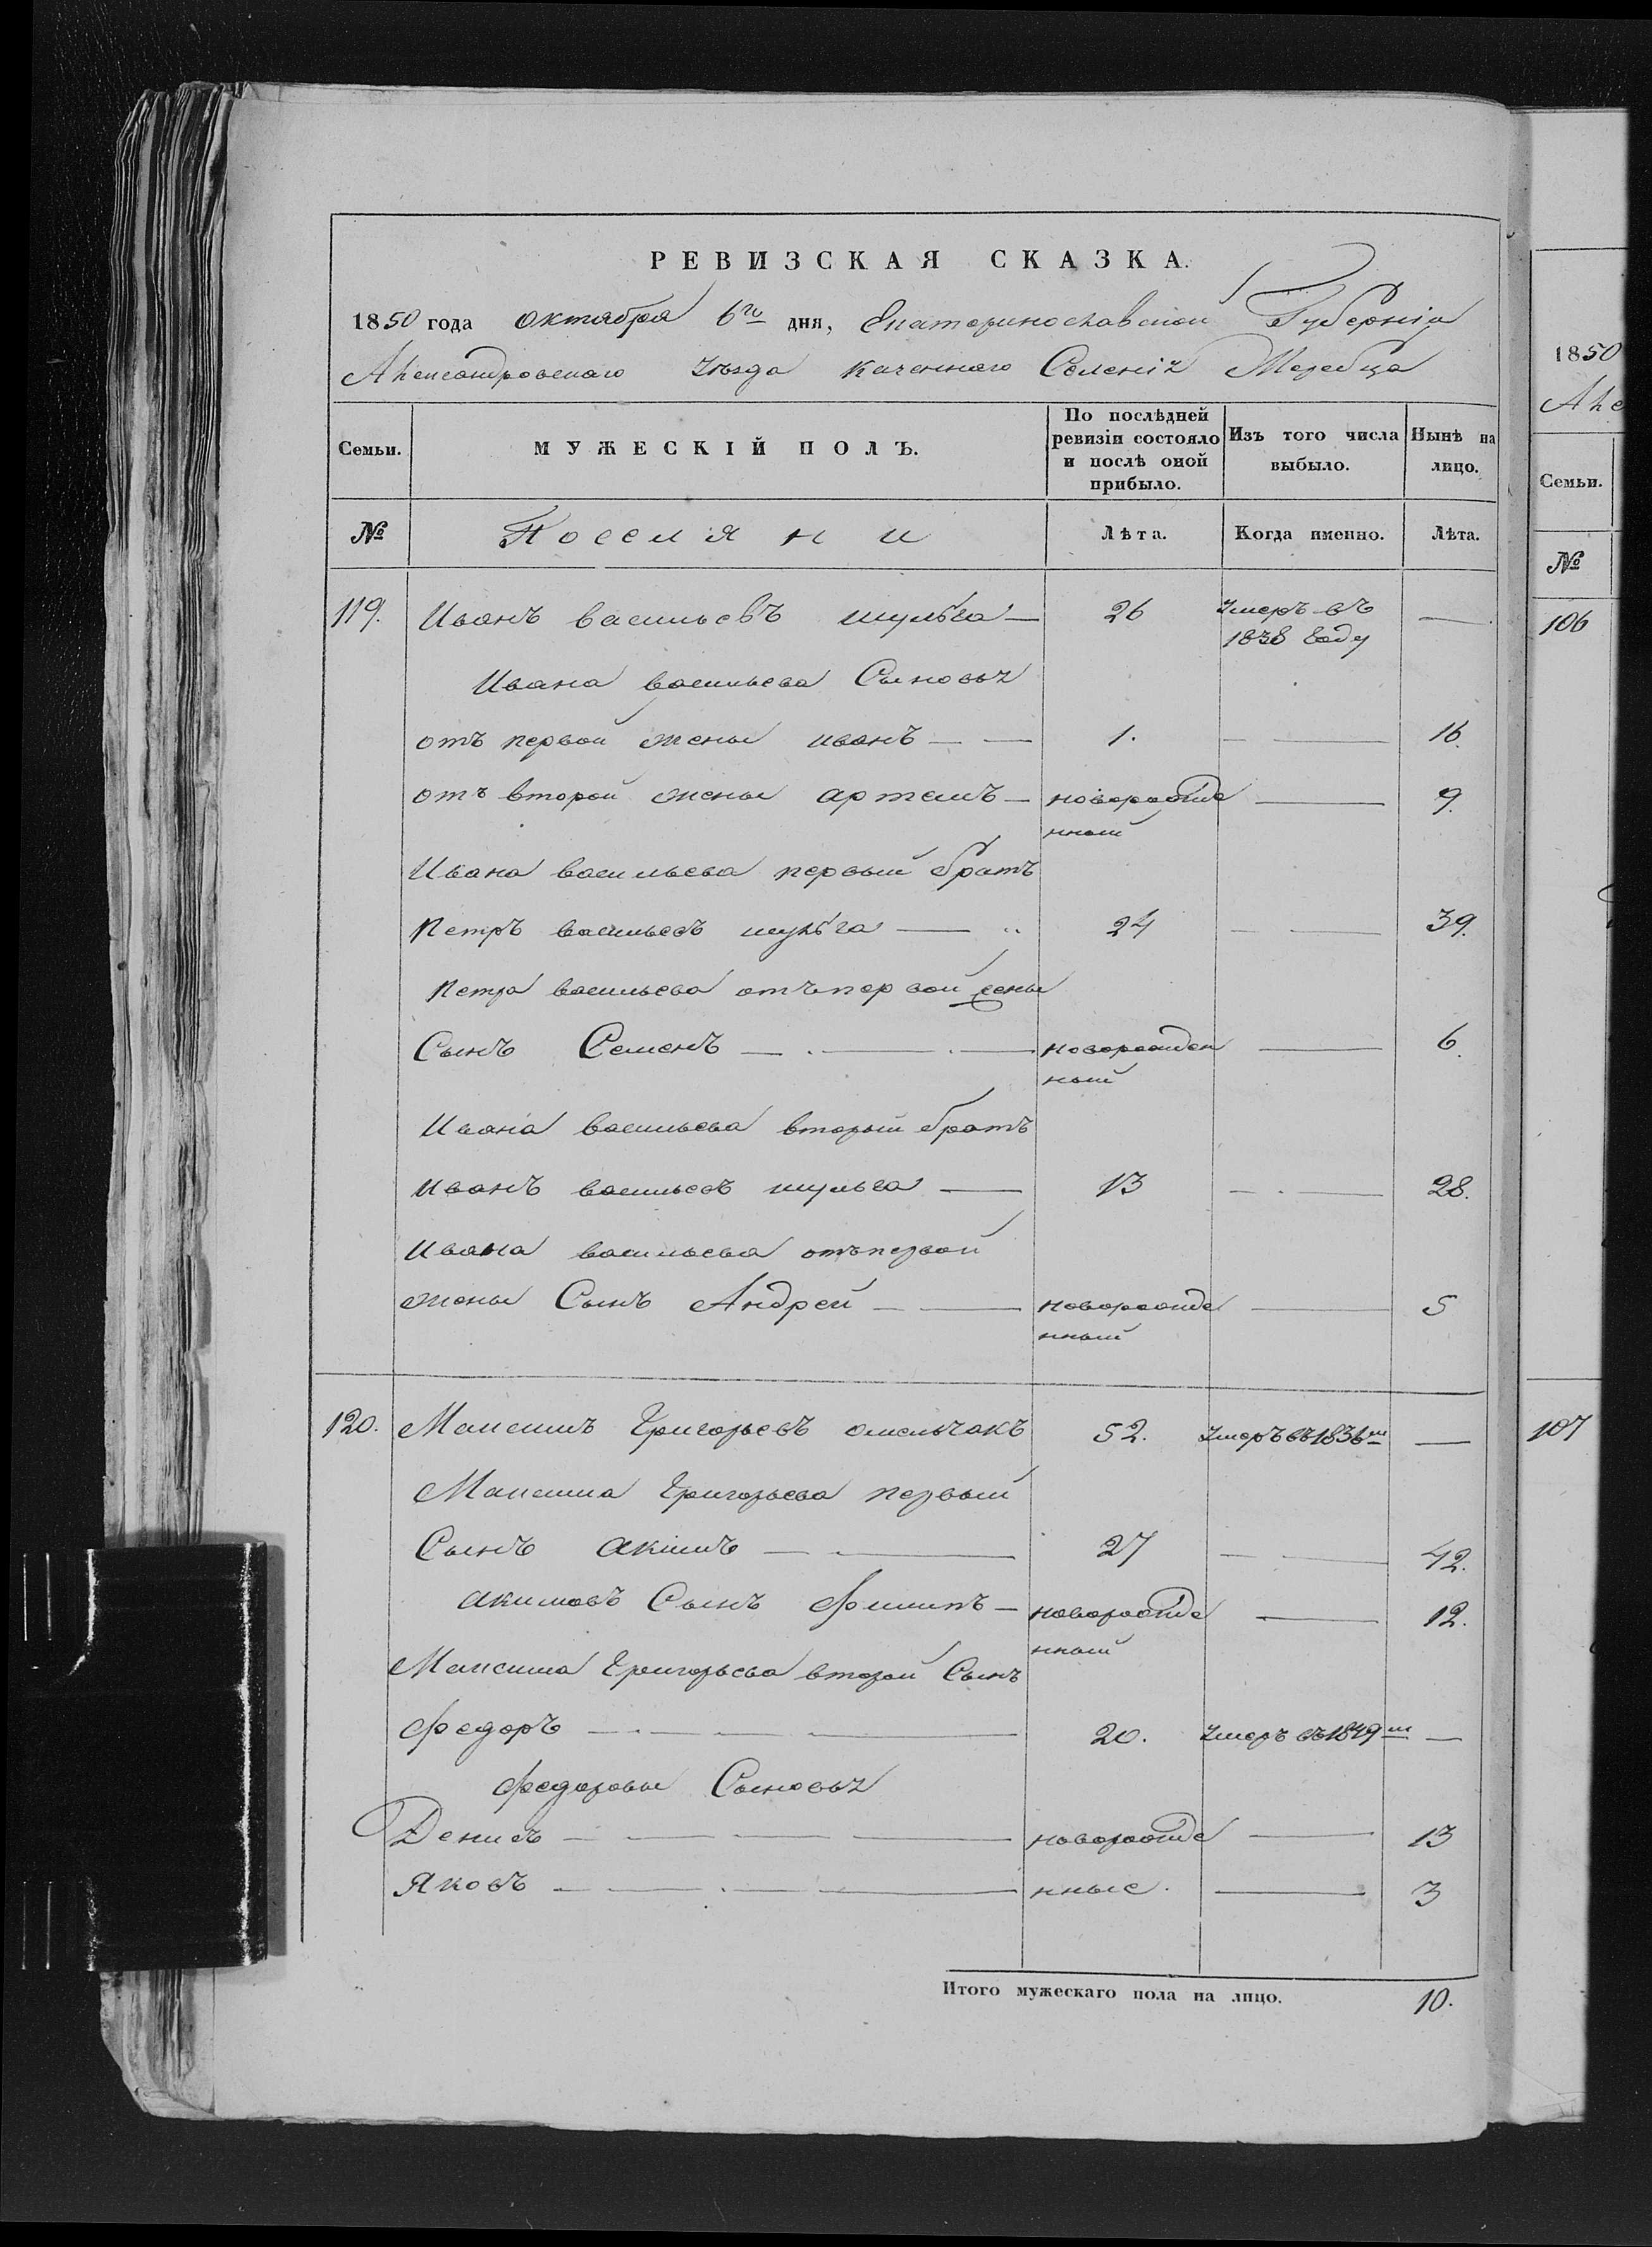 РЕВИЗСКАЯ СКАЗКА.
1850 года Октября 6го дня, Екатеринославской Губерніи
Александровскаго Уезда казеннаго Селенія Жеребца
Семьи. МУЖЕСКІЙ ПОЛЪ. По послѣдней ревизіи состояло и послѣ оной прибыло. Изъ того числа выбыло. Нынѣ на лицо.
№ Поселяни Лѣта. Когда именно. Лѣта.
119. Иванъ васильевъ шульга — 26 Умеръ въ —
1838 году
Ивана васильева Сыновья
отъ первой жены иванъ — — 1. — — 16.
отъ второй жены артемъ — новорожде — 9.
нный
Ивана васильева первый братъ
Петръ васильевъ шульга — 24 — — 39.
Петра васильева отъ первой жены
Сынъ Семенъ — — новорожден — 6.
ный
Ивана васильева вторый братъ
Иванъ васильевъ шульга — 13 — — 28.
Ивана васильева отъ первой
жены Сынъ Андрей — — новорожде — 5
нный
120. Максимъ Григорьевъ омельчакъ 52. Умеръ въ 1836м —
Максима Григорьева первый
Сынъ акимъ — — 27 — — 42.
акимовъ Сынъ Филипъ — новорожде — 12.
нный
Максима Григорьева второй Сынъ
Федоръ — — — — 20. Умеръ въ 1849м —
Федоровы Сыновья
Денисъ — — — — новорожде — 13
Яковъ — — — — нные. — 3
Итого мужескаго пола на лицо. 10.
1850
Але
Семьи.
№
106
107